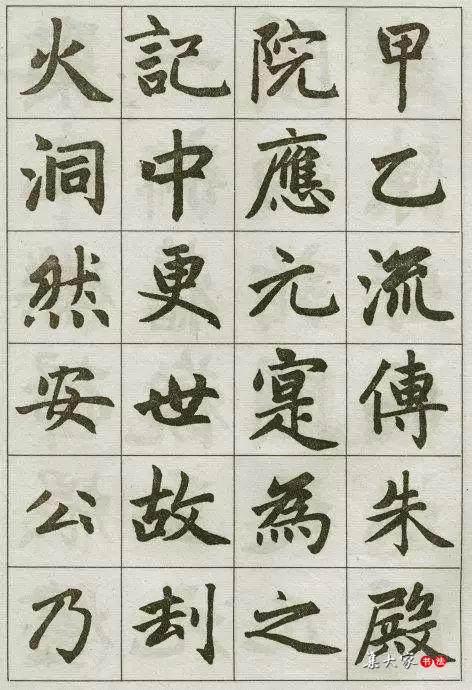 甲乙流傳朱殿
院應元寔為之
記中更世故刦
火洞然安公乃
集大家书法